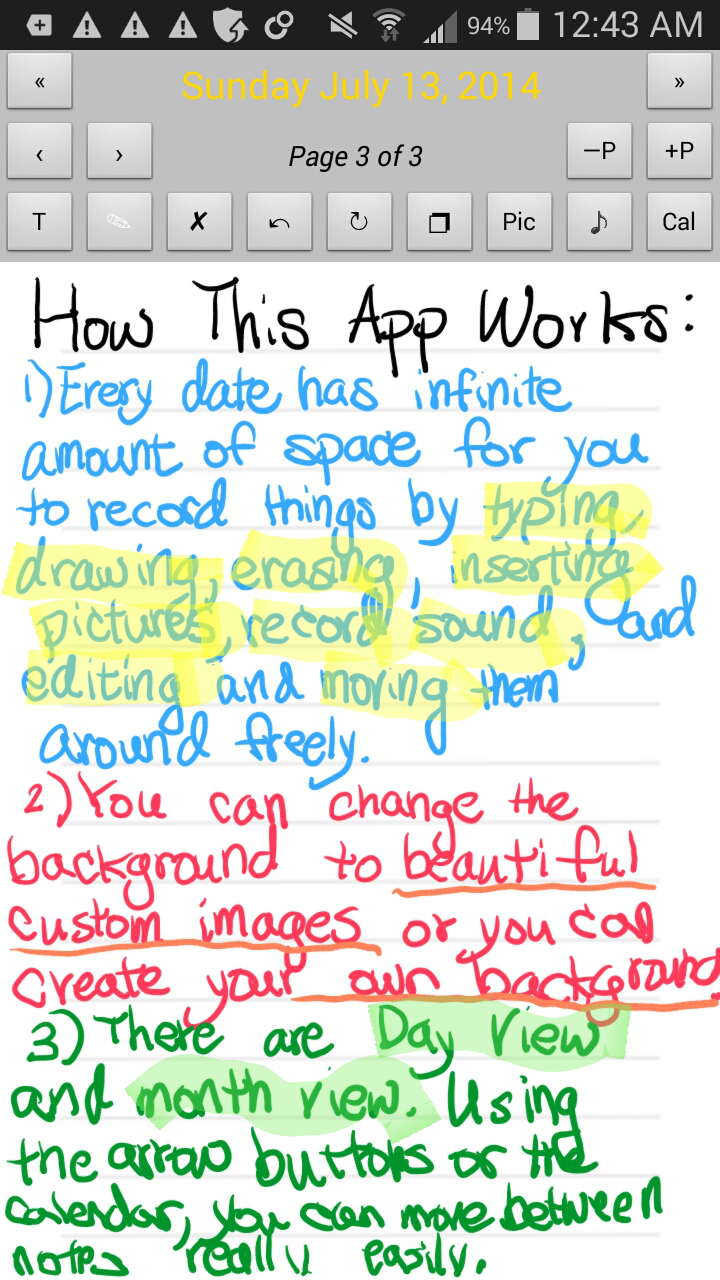 94% 12:43 AM
« Sunday July 13, 2014 »
‹ › Page 3 of 3 —P +P
T ✗ Pic ♪ Cal
How This App Works:
1) Every date has infinite
amount of space for you
to record things by typing,
drawing, erasing, inserting
pictures, record sound, and
editing and moving them
around freely.
2) You can change the
background to beautiful
custom images or you can
create your own background.
3) There are Day View
and month view. Using
the arrow buttons or the
calendar, you can move between
notes really easily.